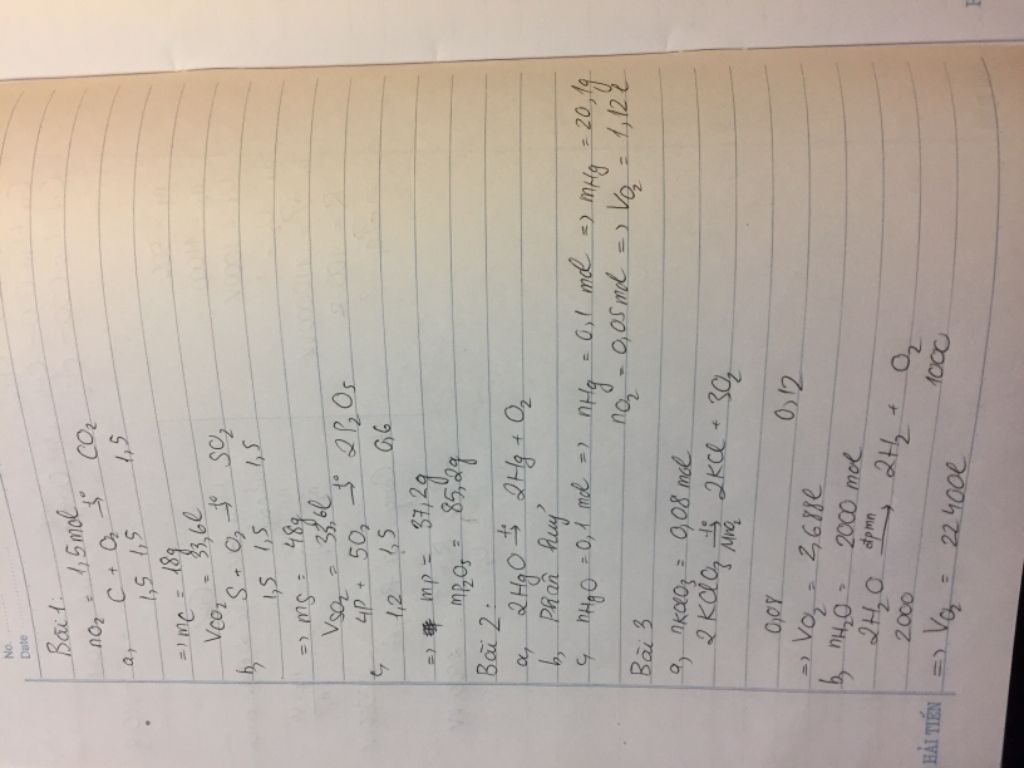 No.
Date
Bài 1:
nO2 = 1,5 mol
a, C + O2 →t° CO2
1,5 1,5 1,5
=> mC = 18g
VCO2 = 33,6l
b, S + O2 →t° SO2
1,5 1,5 1,5
=> mS = 48g
VSO2 = 33,6l
c, 4P + 5O2 →t° 2P2O5
1,2 1,5 0,6
=> mP = 37,2g
mP2O5 = 85,2g
Bài 2:
a, 2HgO →t° 2Hg + O2
b, phân huỷ
c, nHgO = 0,1 mol => nHg = 0,1 mol => mHg = 20,1g
nO2 = 0,05 mol => VO2 = 1,12l
Bài 3
a, nKClO3 = 0,08 mol
2KClO3 →t° MnO2 2KCl + 3O2
0,08 0,12
=> VO2 = 2,688l
b, nH2O = 2000 mol
2H2O →dpnn 2H2 + O2
2000 1000
=> VO2 = 22400l
HẢI TIẾN